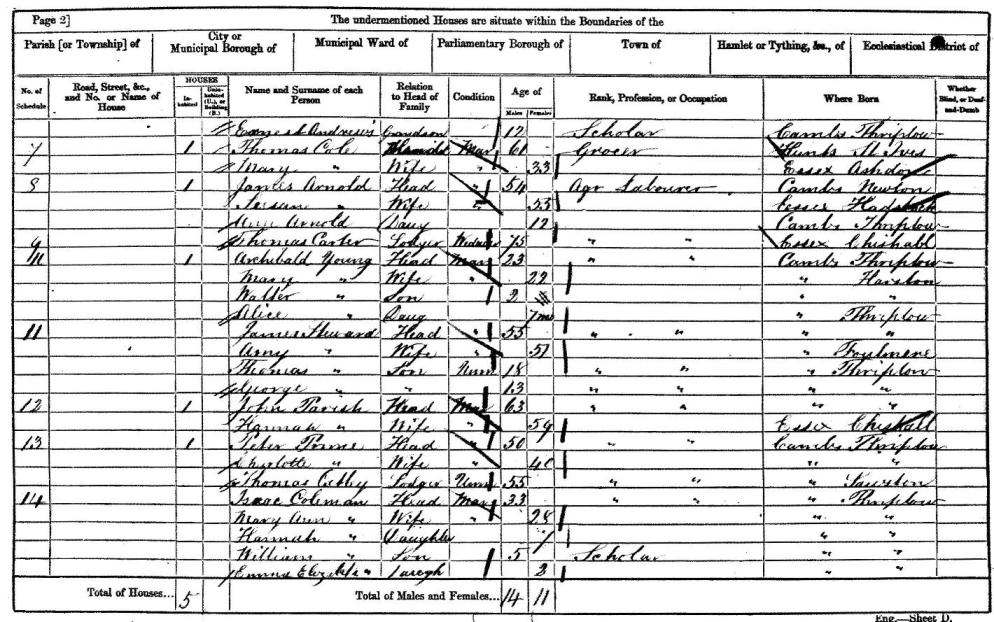 Page 2] The undermentioned Houses are situate within the Boundaries of the
Parish [or Township] of City or Municipal Borough of Municipal Ward of Parliamentary Borough of Town of Hamlet or Tything, &c., of Ecclesiastical District of
No. of Schedule Road, Street, &c., and No. or Name of House HOUSES Inhabited Uninhabited (U.), or Building (B.) Name and Surname of each Person Relation to Head of Family Condition Age of Males Females Rank, Profession, or Occupation Where Born Whether Blind, or Deaf-and-Dumb
Ernest Andrews Grandson 12 Scholar Cambs Thriplow
7 1 Thomas Cole Mar 61 Grocer Hunts St Ives
Mary " Wife " 33 Essex Ashdon
8 1 James Arnold Head " 54 Agr Labourer Cambs Newton
" Wife " 53 Essex Hadstock
Arnold Daug 12 Cambs Thriplow
9 Thomas Carter Lodger 75 " " Essex Chishall
1 Archibald Young Head Mar 23 " " Cambs Thriplow
Mary " Wife " 22 " Harston
Walter " Son 2 " "
Alice " Daug 7mo " Thriplow
11 James Head " 55 " " "
Amy " Wife " 51 " Foulmere
Thomas " Son Unm 18 " " " Thriplow
George " " 13 " " " "
12 1 John Parish Head Mar 63 " " " "
Hannah " Wife " 59 Essex Chishall
13 1 Peter Head " 50 " " Cambs Thriplow
Charlotte " Wife " " "
Thomas Lodger Unm 55 " " " Sawston
14 Isaac Coleman Head Mar 33 " " " Thriplow
Mary Ann " Wife " 28 " "
Hannah " Daughter 7 " "
William " Son 5 Scholar " "
Emma " 2 " "
Total of Houses... 5 Total of Males and Females... 14 11
Eng.—Sheet D.